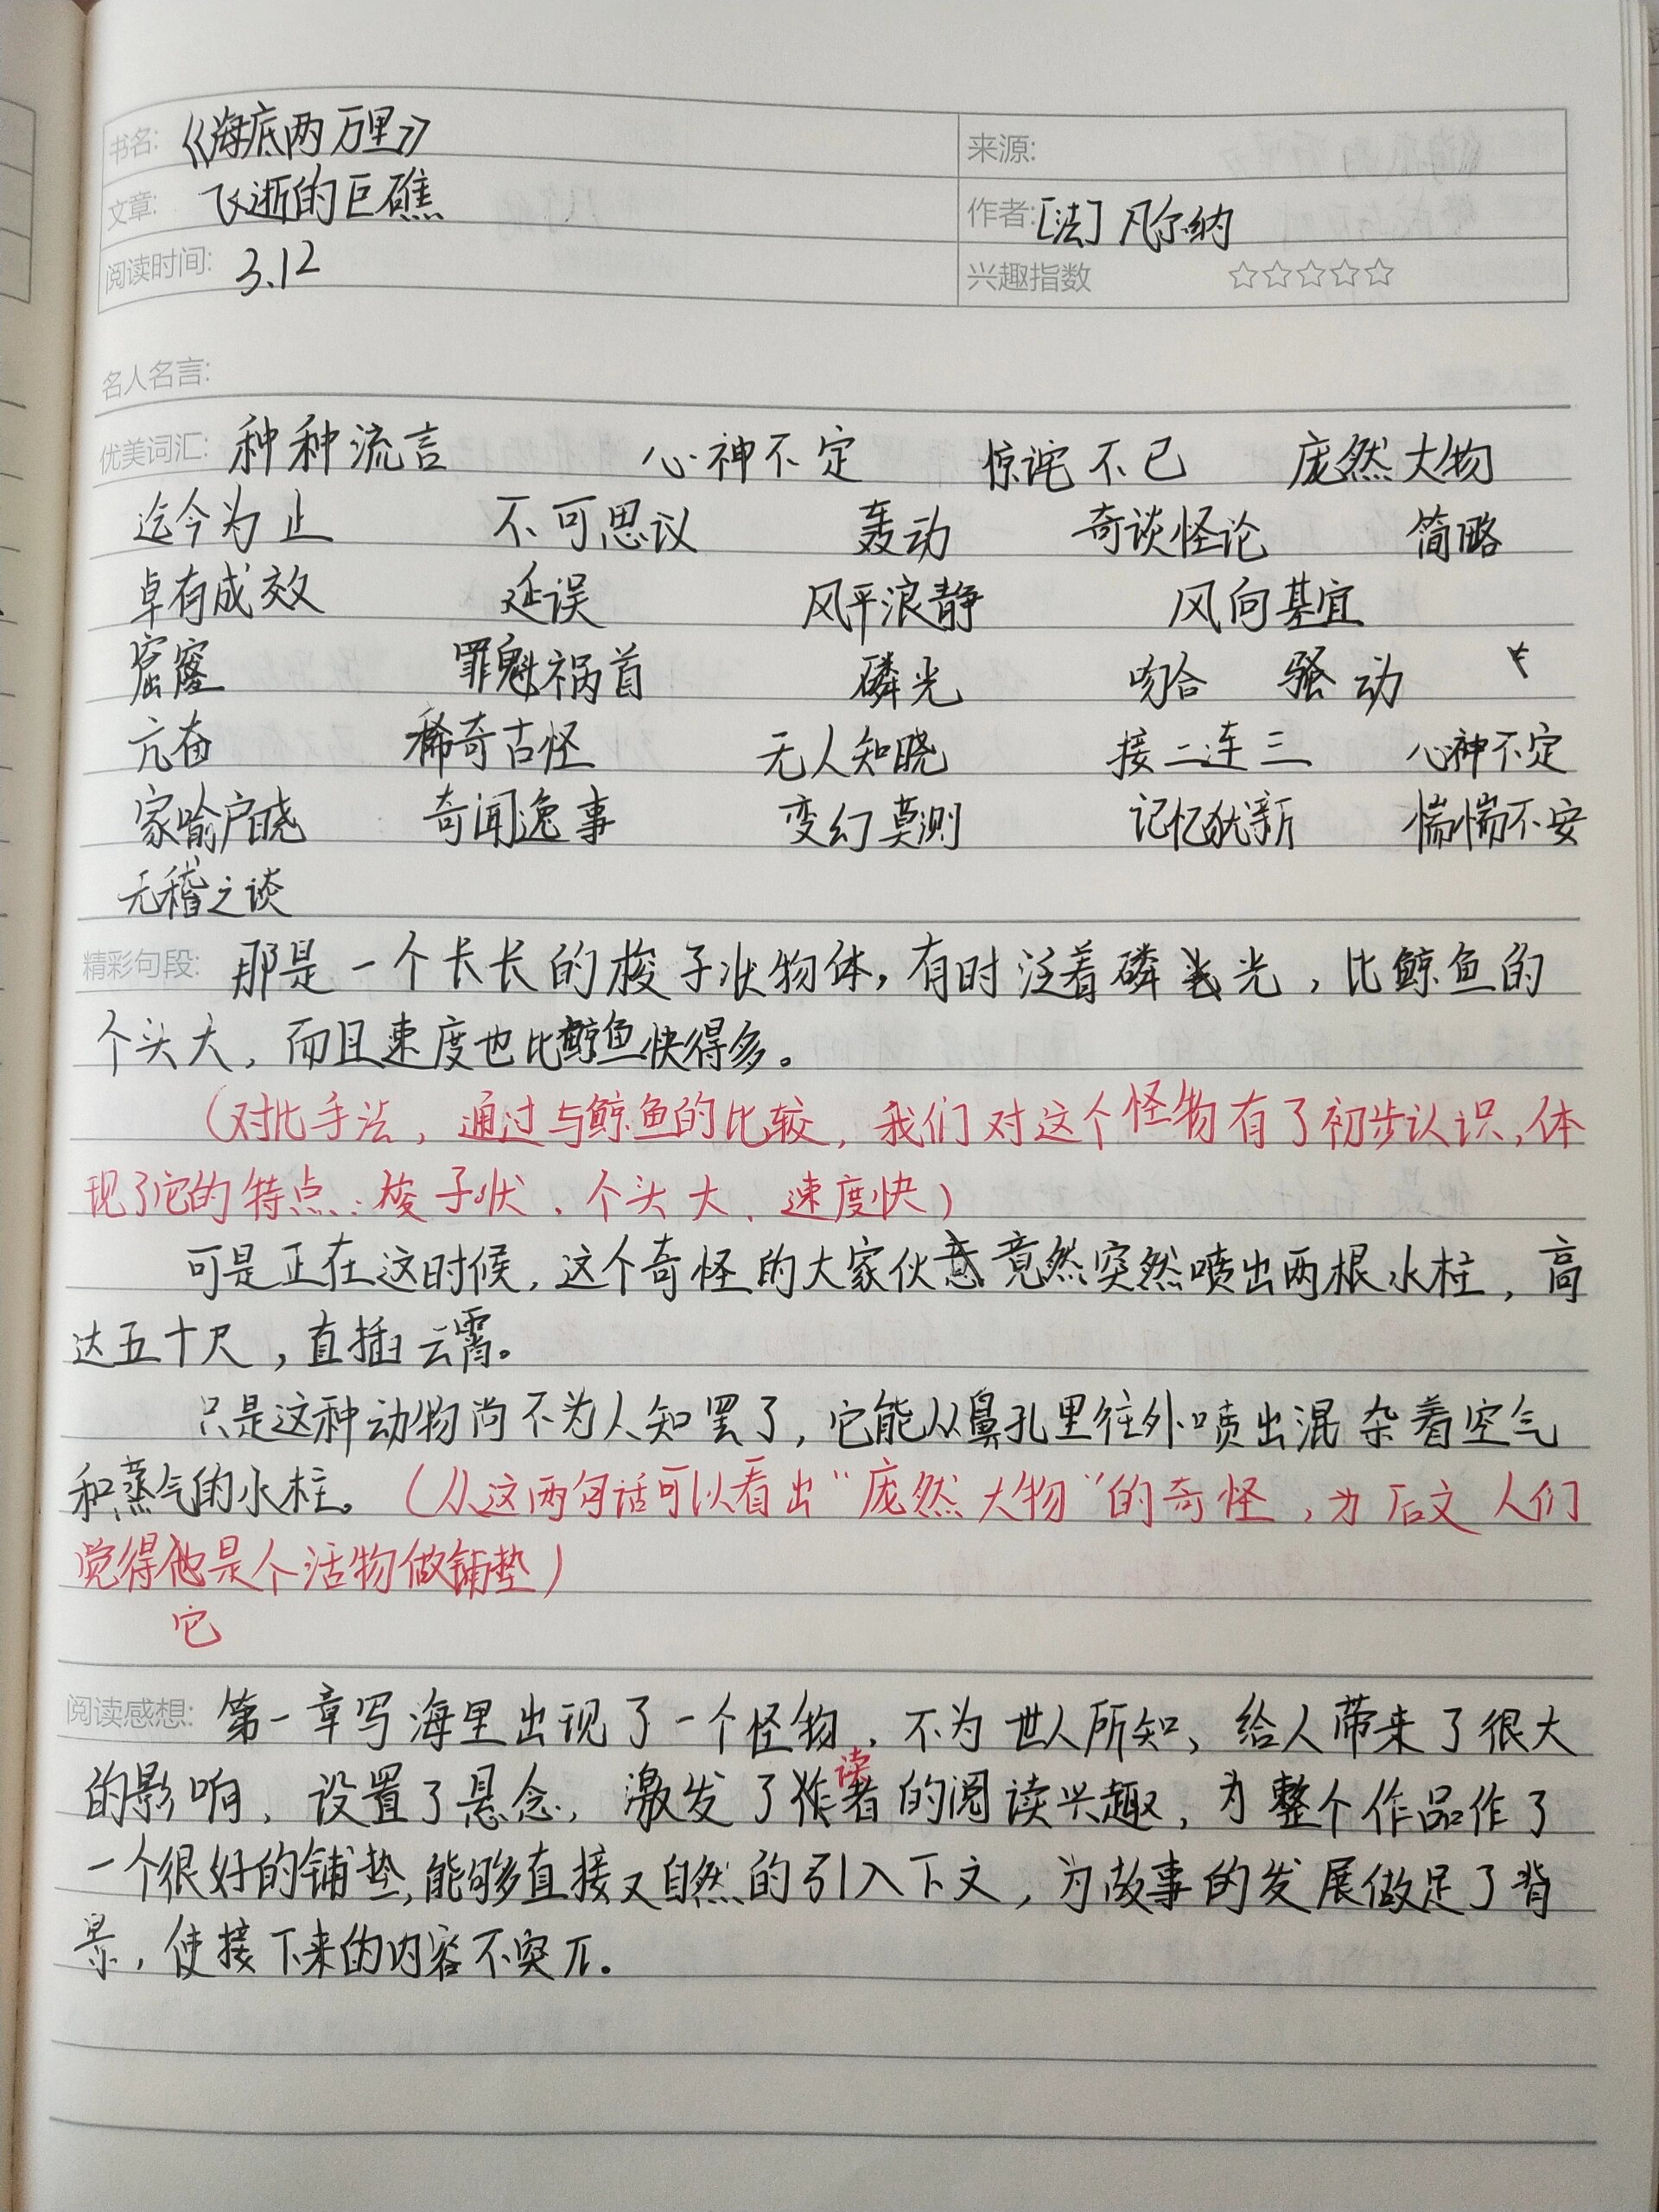 书名: 《海底两万里》 来源:
文章: 飞逝的巨礁 作者: [法] 凡尔纳
阅读时间: 3.12 兴趣指数 ☆☆☆☆☆
名人名言:
优美词汇: 种种流言 心神不定 惊诧不已 庞然大物
迄今为止 不可思议 轰动 奇谈怪论 简略
卓有成效 延误 风平浪静 风向甚宜
窟窿 罪魁祸首 磷光 吻合 骚动
亢奋 稀奇古怪 无人知晓 接二连三 心神不定
家喻户晓 奇闻逸事 变幻莫测 记忆犹新 惴惴不安
无稽之谈
精彩句段: 那是一个长长的梭子状物体,有时泛着磷光,比鲸鱼的
个头大,而且速度也比鲸鱼快得多。
(对比手法,通过与鲸鱼的比较,我们对这个怪物有了初步认识,体
现了它的特点:梭子状、个头大、速度快)
可是正在这时候,这个奇怪的大家伙竟然突然喷出两根水柱,高
达五十尺,直插云霄。
只是这种动物尚不为人知罢了,它能从鼻孔里往外喷出混杂着空气
和蒸气的水柱。(从这两句话可以看出“庞然大物”的奇怪,为后文人们
觉得他是个活物做铺垫)
它
阅读感想: 第一章写海里出现了一个怪物,不为世人所知,给人带来了很大
读
的影响,设置了悬念,激发了作者的阅读兴趣,为整个作品作了
一个很好的铺垫,能够直接又自然的引入下文,为故事的发展做足了背
景,使接下来的内容不突兀.